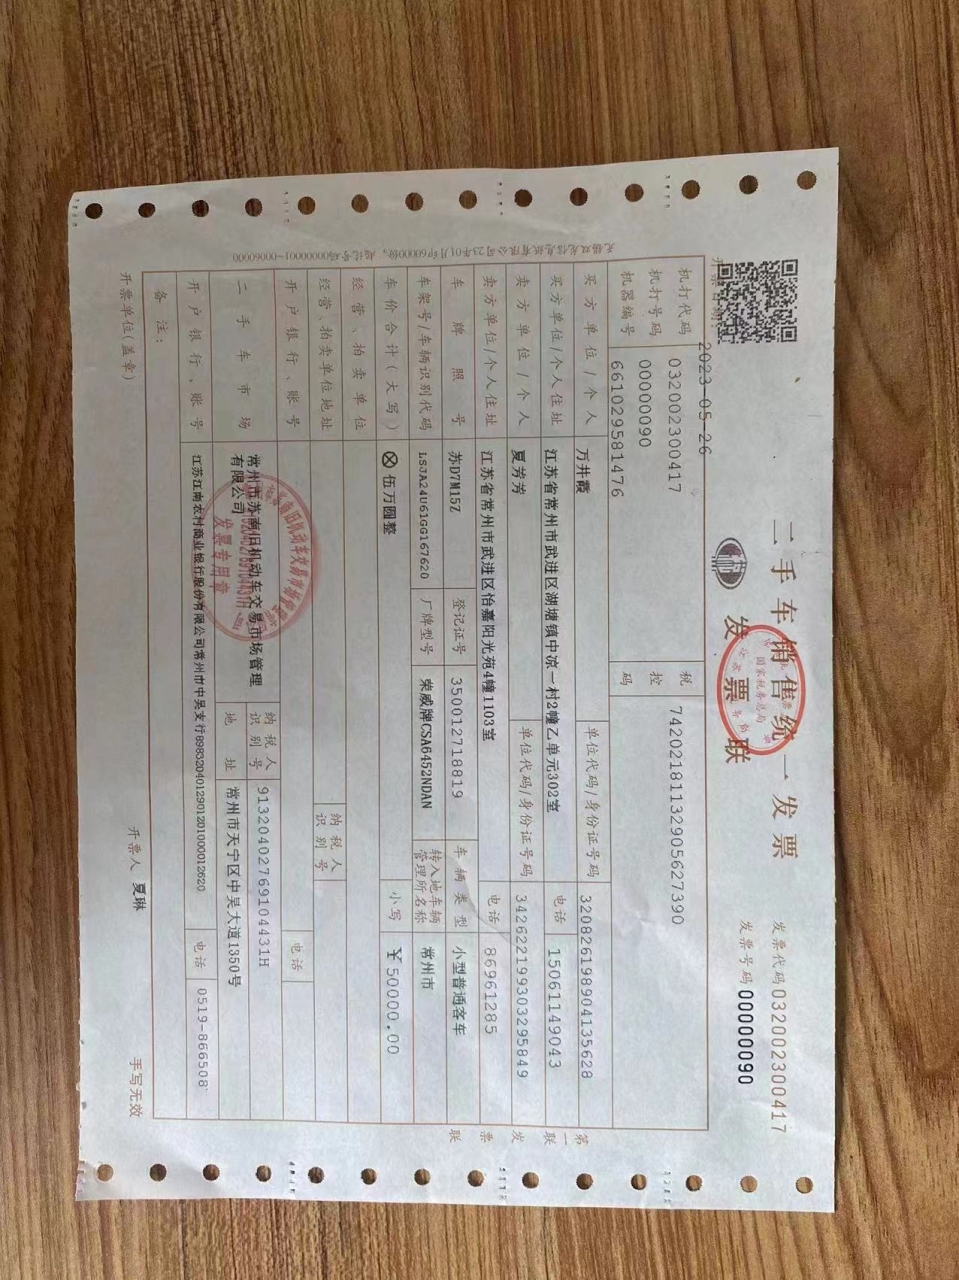 二手车销售统一发票
发票联
发票代码032002300417
发票号码00000090
2023-05-26
机打代码 032002300417
机打号码 00000090
机器编号 661029581476
税控码 742021811329056273​90
买方单位/个人 万井霞 单位代码/身份证号码 320826198904135628
买方单位/个人住址 江苏省常州市武进区湖塘镇中凉一村2幢乙单元302室 电话 15061149043
卖方单位/个人 夏芳芳 单位代码/身份证号码 342622199303295849
卖方单位/个人住址 江苏省常州市武进区怡嘉阳光苑4幢1103室 电话 86961285
车牌照号 苏D7M15Z 登记证号 350012718819 车辆类型 小型普通客车
车架号/车辆识别代码 LSJA24U61GG167620 厂牌型号 荣威牌CSA6452NDAN 转入地车辆管理所名称 常州市
车价合计(大写) ⊗伍万圆整 小写 ￥50000.00
经营、拍卖单位
经营、拍卖单位地址 纳税人识别号
开户银行、账号 电话
二手车市场 常州市苏南旧机动车交易市场管理有限公司 纳税人识别号 91320402769104431H
地址 常州市天宁区中吴大道1350号
开户银行、账号 江苏江南农村商业银行股份有限公司常州市中吴支行89832040129012010000012620 电话 0519-866508
备注：
开票单位(盖章) 开票人 夏琳 手写无效
第一联 发票联
国家税务总局
发票专用章